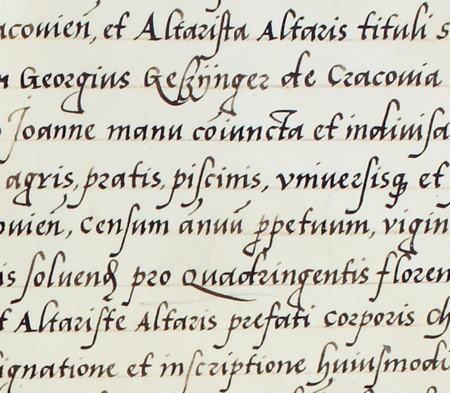 acouien̄, et Altarista Altaris tituli s
Georgius de Cracouia
Joanne manu cōiuncta et indiuisa
agris, pratis, piscinis, vniuersisq̢ et
ouien̄, censum ānuū ꝑpetuum, vigin
is soluend̢ pro Quadringentis floren
t Altariste Altaris prefati corporis Ch
ignatione et inscriptione huiusmodi